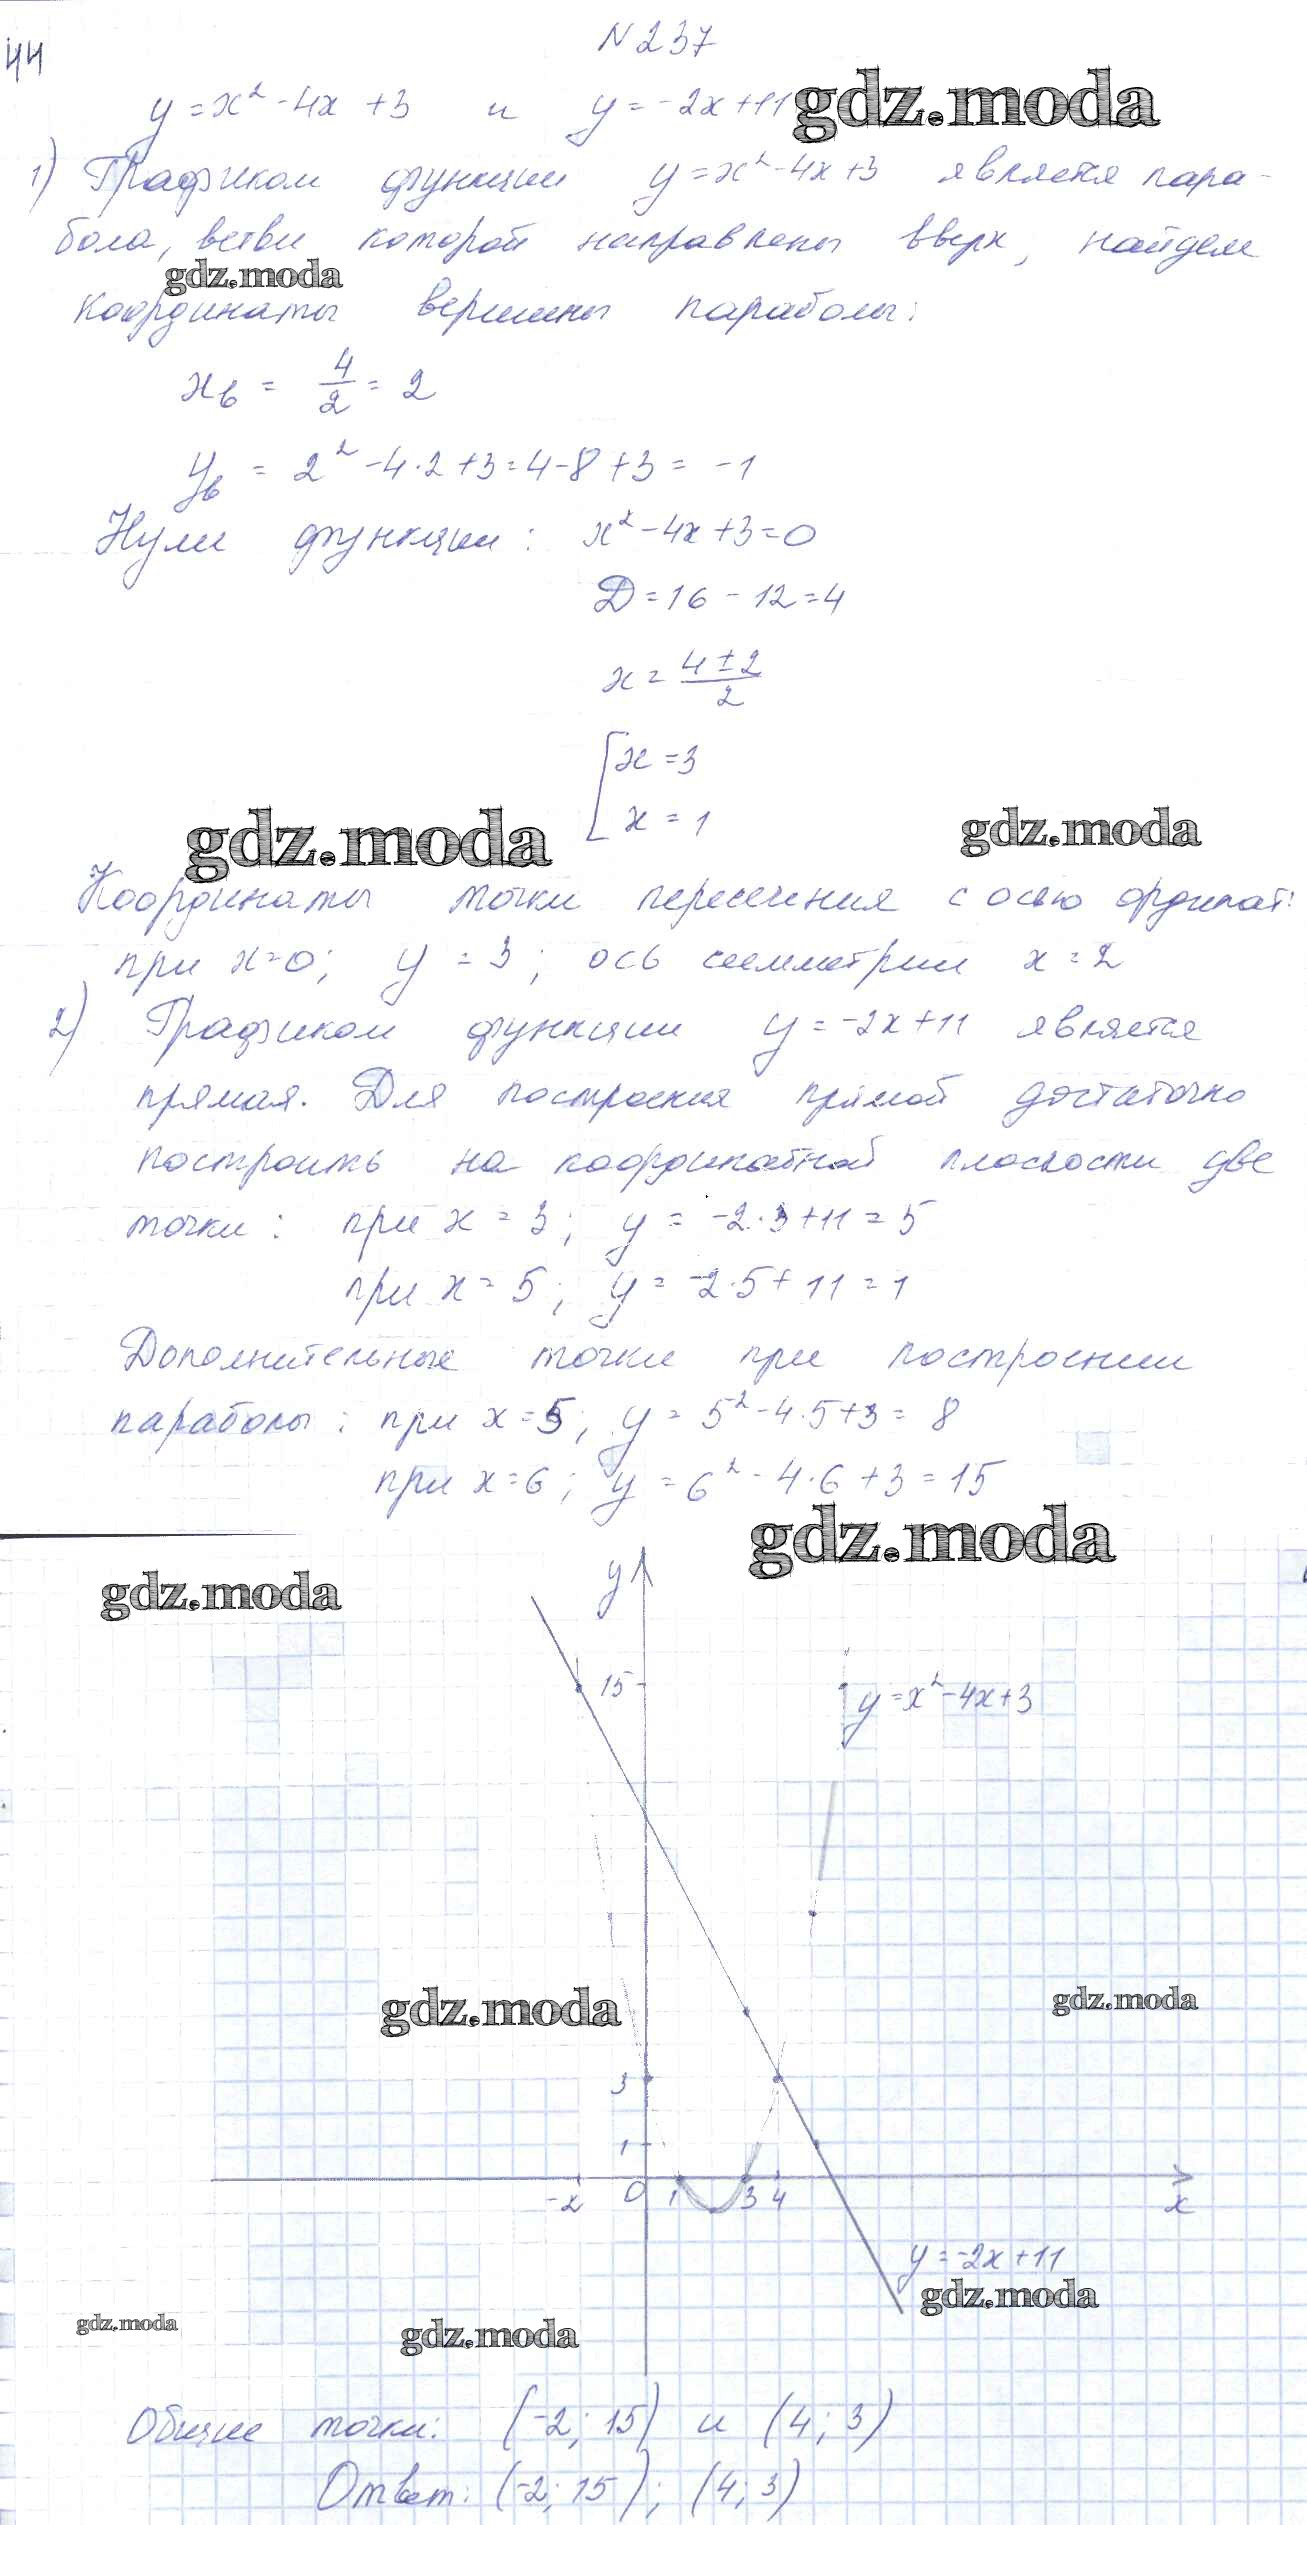 44
N 237
y = x² - 4x + 3 и y = -2x + 11
gdz.moda
1) Графиком функции y = x² - 4x + 3 является пара-
бола, ветви которой направлены вверх, найдем
gdz.moda
координаты вершины параболы:
xв = 4/2 = 2
yв = 2² - 4·2 + 3 = 4 - 8 + 3 = -1
Нули функции: x² - 4x + 3 = 0
D = 16 - 12 = 4
x = (4 ± 2)/2
[ x = 3
x = 1
gdz.moda
gdz.moda
Координаты точки пересечения с осью ординат:
при x = 0; y = 3; ось симметрии x = 2
2) Графиком функции y = -2x + 11 является
прямая. Для построения прямой достаточно
построить на координатной плоскости две
точки: при x = 3; y = -2·3 + 11 = 5
при x = 5; y = -2·5 + 11 = 1
Дополнительные точки при построении
параболы: при x = 5; y = 5² - 4·5 + 3 = 8
при x = 6; y = 6² - 4·6 + 3 = 15
gdz.moda
y
gdz.moda
15
y = x² - 4x + 3
gdz.moda
gdz.moda
3
1
-2 0 1 3 4 x
y = -2x + 11
gdz.moda
gdz.moda
gdz.moda
Общие точки: (-2; 15) и (4; 3)
Ответ: (-2; 15); (4; 3)